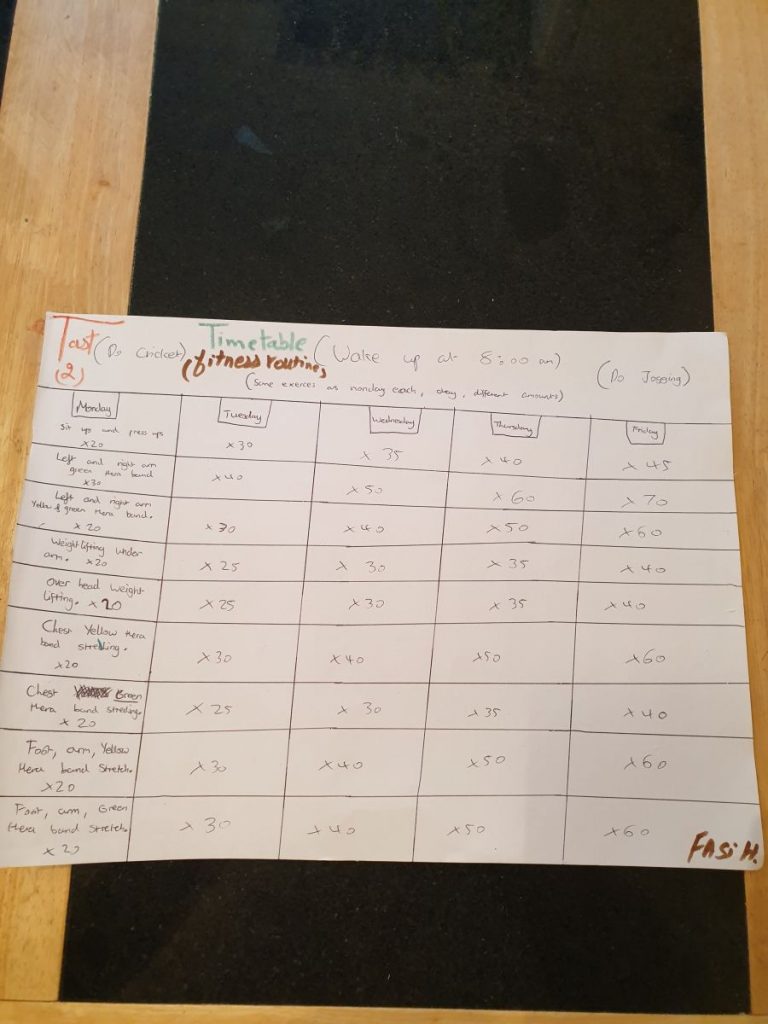 Tast
(2)
(Do Cricket)
Timetable
(fitness routine)
(Wake up at 8:00 am)
(Do Jogging)
(Same exerces as monday each, day, different amounts)
Monday Tuesday Wednesday Thursday Friday
Sit ups and press ups
x20 x30 x 35 x 40 x 45
Left and right arm
green thera band
x30 x40 x50 x 60 x 70
Left and right arm
Yellow & green thera band.
x 20 x30 x40 x50 x60
Weight lifting under
arm. x20 x 25 x 30 x 35 x 40
Over head weight
lifting. x20 x25 x30 x 35 x40
Chest Yellow thera
band streching.
x20 x30 x40 x50 x60
Chest Green
thera band streching.
x 20 x 25 x 30 x35 x 40
Foot, arm, Yellow
thera band stretch.
x20 x30 x40 x50 x60
Foot, arm, Green
thera band stretch.
x 20 x 30 x40 x50 x60
FASi H.